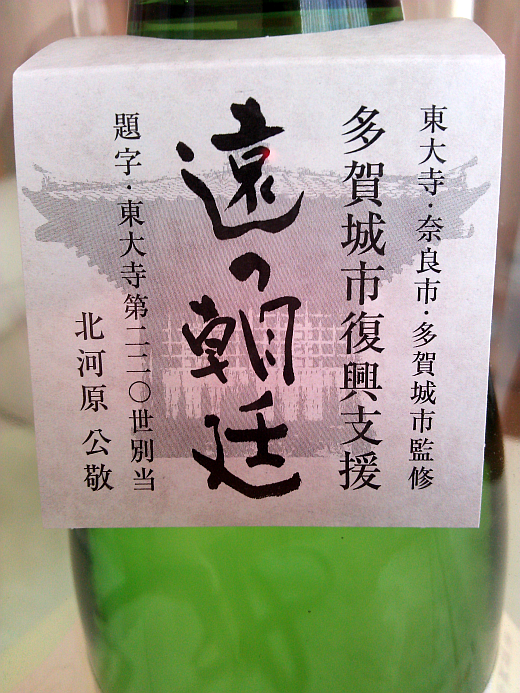 東大寺・奈良市・多賀城市監修
多賀城市復興支援
遠の朝廷
題字・東大寺第二二〇世別当
北河原 公敬